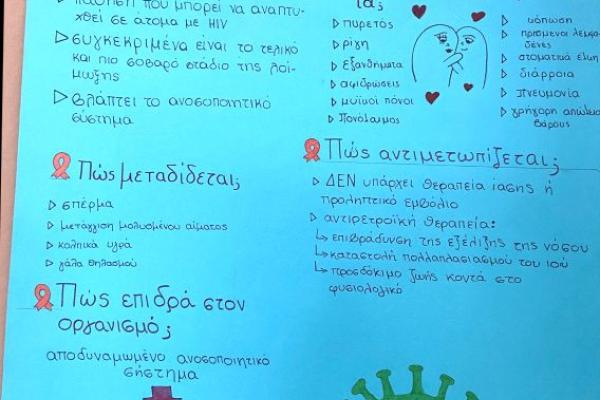 πάθηση που μπορεί να αναπτυ-
χθεί σε άτομα με HIV
▷ συγκεκριμένα είναι το τελικό
και πιο σοβαρό στάδιο της λοί-
μωξης
▷ βλάπτει το ανοσοποιητικό
σύστημα
Πώς μεταδίδεται;
▷ σπέρμα
▷ μετάγγιση μολυσμένου αίματος
▷ κολπικά υγρά
▷ γάλα θηλασμού
Πώς επιδρά στον
οργανισμό;
αποδυναμωμένο ανοσοποιητικό
σύστημα
τα;
▷ πυρετός
▷ ρίγη
▷ εξανθήματα
▷ εφιδρώσεις
▷ μυϊκοί πόνοι
▷ πονόλαιμος
▷ κόπωση
▷ πρησμένοι λεμφα-
δένες
▷ στοματικά έλκη
▷ διάρροια
▷ πνευμονία
▷ γρήγορη απώλεια
βάρους
Πώς αντιμετωπίζεται;
▷ ΔΕΝ υπάρχει θεραπεία ίασης ή
προληπτικό εμβόλιο
▷ αντιρετροϊκή θεραπεία:
↳ επιβράδυνση της εξέλιξης της νόσου
↳ καταστολή πολλαπλασιασμού του ιού
↳ προσδόκιμο ζωής κοντά στο
φυσιολογικό